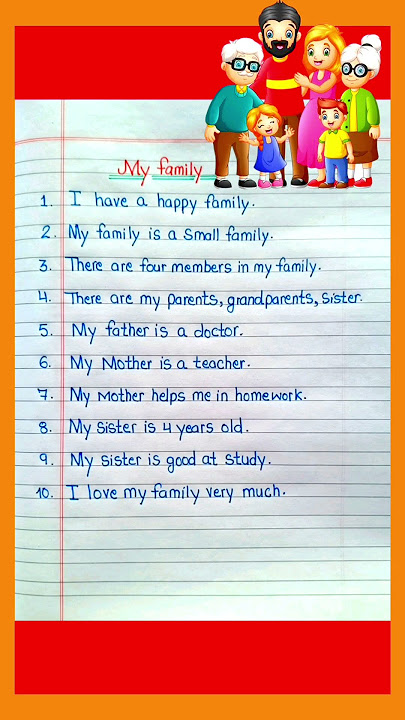 My family
1. I have a happy family.
2. My family is a small family.
3. There are four members in my family.
4. There are my parents, grandparents, sister.
5. My father is a doctor.
6. My Mother is a teacher.
7. My Mother helps me in homework.
8. My sister is 4 years old.
9. My sister is good at study.
10. I love my family very much.